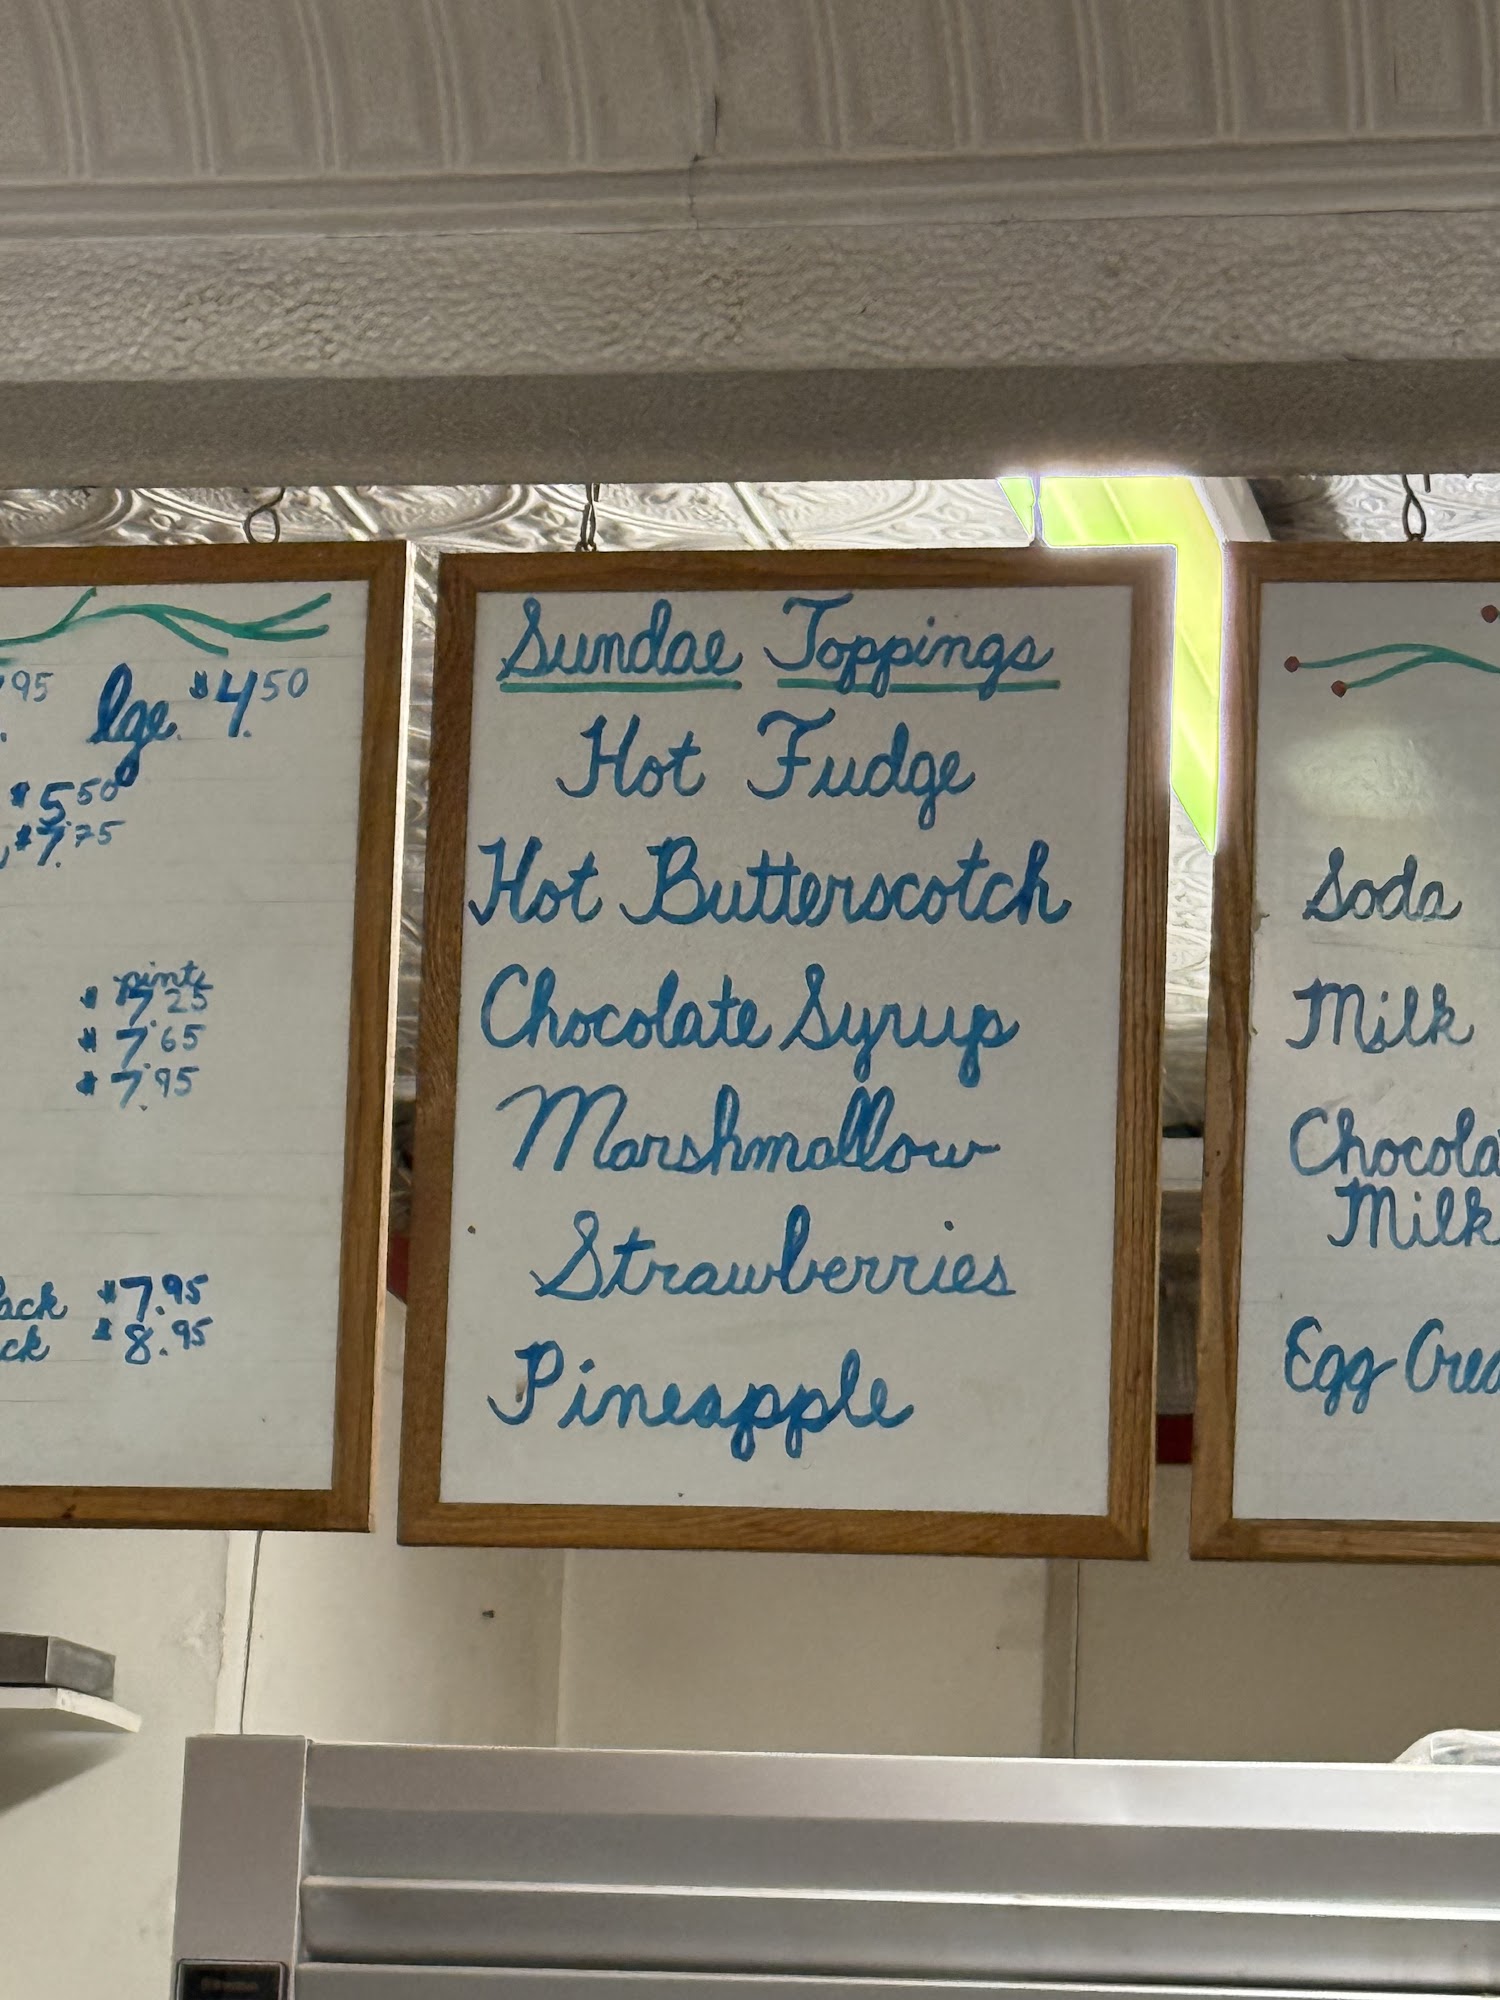 95 lge. $4.50
$5.50
$7.75
pints
$7.25
$7.65
$7.95
ack $7.95
ck $8.95
Sundae Toppings
Hot Fudge
Hot Butterscotch
Chocolate Syrup
Marshmallow
Strawberries
Pineapple
Soda
Milk
Chocola
Milk
Egg Crea